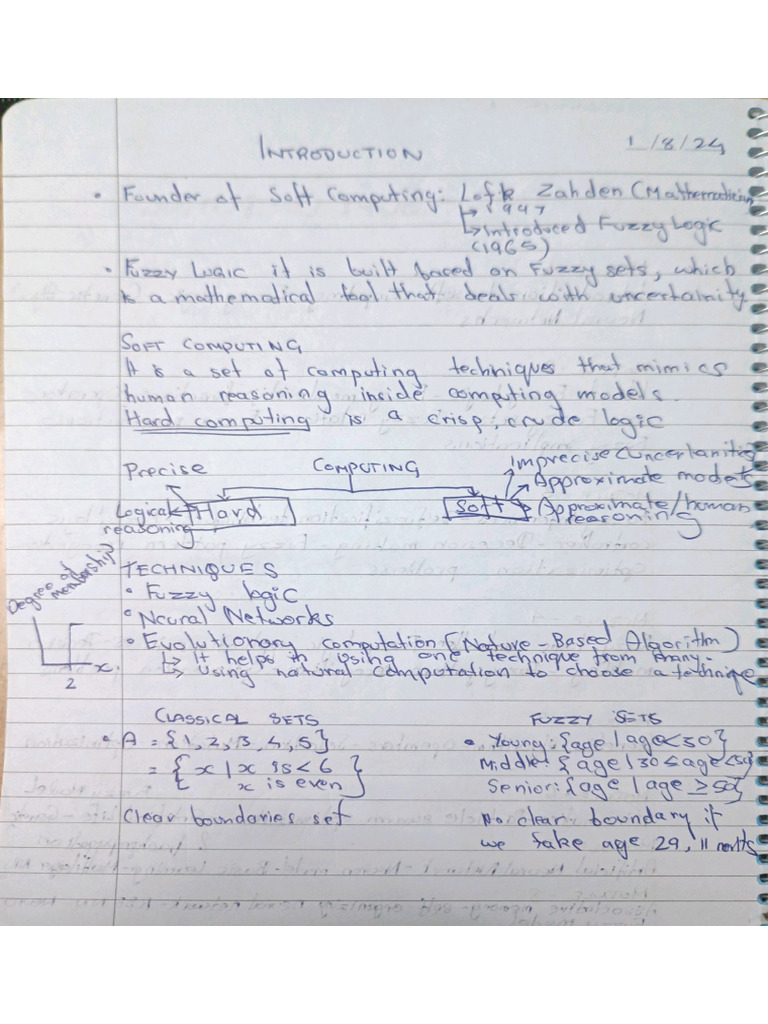 INTRODUCTION 1/8/24
• Founder of Soft Computing: Lofk Zahden (Mathematician
↳ 1947
↳ Introduced Fuzzy Logic
(1965)
• Fuzzy Logic it is built based on Fuzzy sets, which
is a mathematical tool that deals with uncertainity
SOFT COMPUTING
It is a set of computing techniques that mimics
human reasoning inside computing models.
Hard computing is a crisp, crude logic
COMPUTING
Precise
Logical reasoning
Hard
Soft
Imprecise (Uncertanities)
Approximate models
Approximate/human
reasoning
Degree of
membership
x
2
TECHNIQUES
• Fuzzy logic
• Neural Networks
• Evolutionary computation (Nature-Based Algorithm)
↳ It helps in using one technique from many.
↳ Using natural computation to choose a technique
CLASSICAL SETS
• A = {1, 2, 3, 4, 5}
= { x | x is < 6
x is even }
Clear boundaries set
FUZZY SETS
• Young: {age | age < 30}
Middle: {age | 30 ≤ age < 50}
Senior: {age | age ≥ 50}
No clear boundary if
we take age 29, 11 months